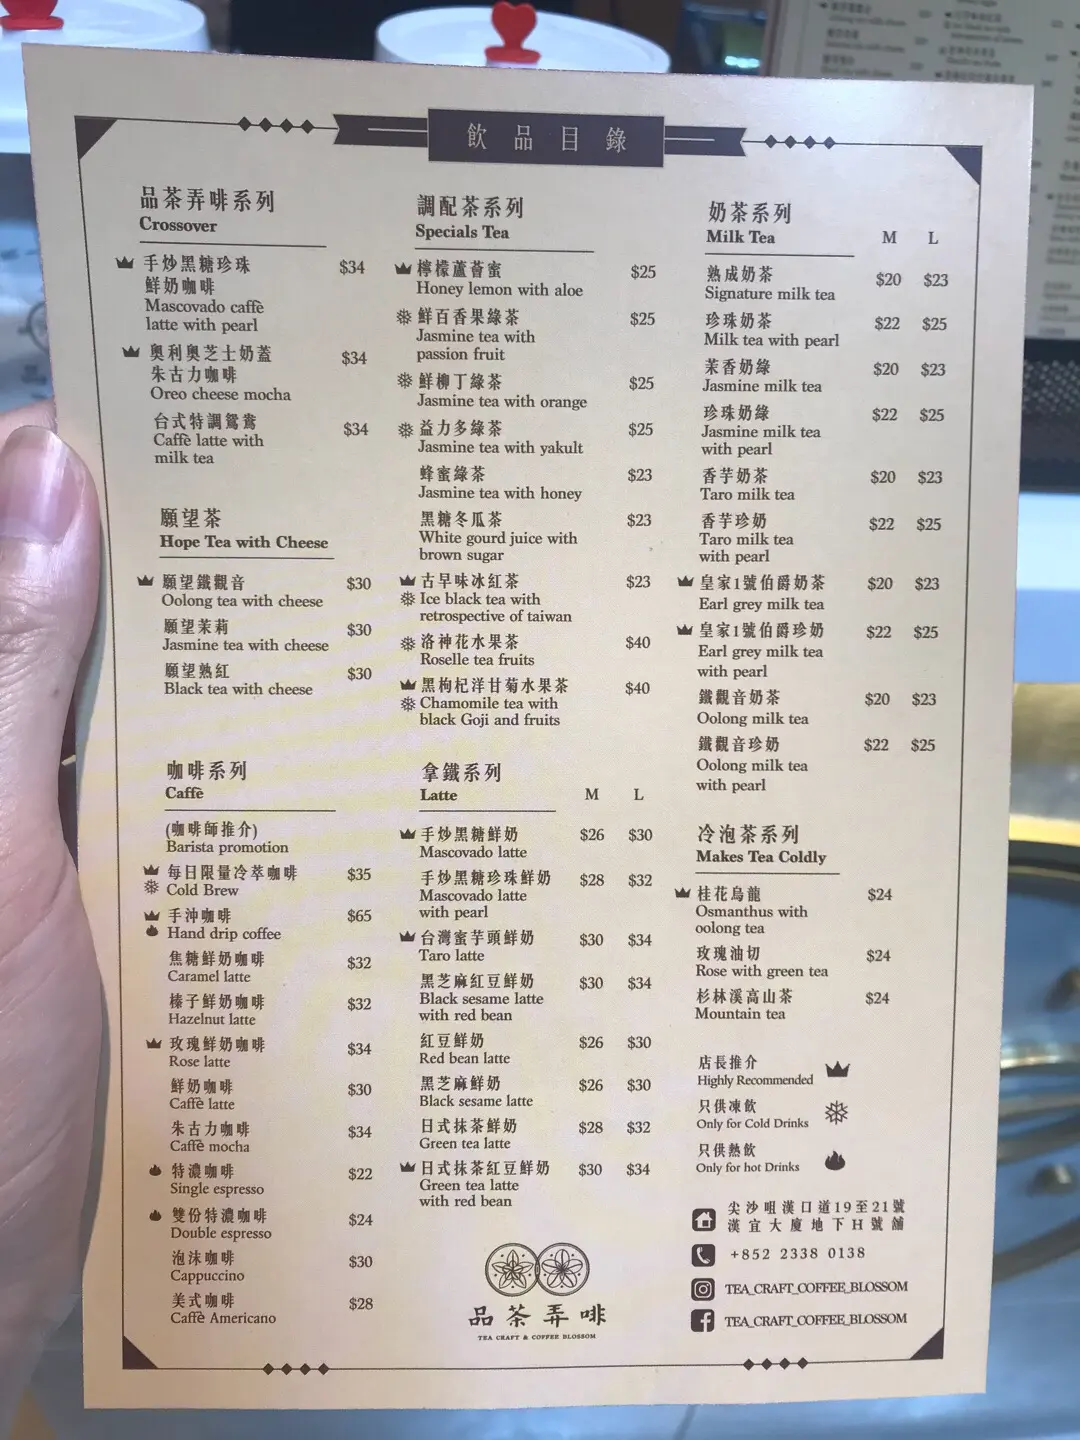 飲品目錄
品茶弄啡系列
Crossover
手炒黑糖珍珠
鮮奶咖啡
$34
Mascovado caffè
latte with pearl
奧利奧芝士奶蓋
朱古力咖啡
$34
Oreo cheese mocha
台式特調鴛鴦
$34
Caffè latte with
milk tea
願望茶
Hope Tea with Cheese
願望鐵觀音
$30
Oolong tea with cheese
願望茉莉
$30
Jasmine tea with cheese
願望熟紅
$30
Black tea with cheese
咖啡系列
Caffè
(咖啡師推介)
Barista promotion
每日限量冷萃咖啡
$35
Cold Brew
手沖咖啡
$65
Hand drip coffee
焦糖鮮奶咖啡
$32
Caramel latte
榛子鮮奶咖啡
$32
Hazelnut latte
玫瑰鮮奶咖啡
$34
Rose latte
鮮奶咖啡
$30
Caffè latte
朱古力咖啡
$34
Caffè mocha
特濃咖啡
$22
Single espresso
雙份特濃咖啡
$24
Double espresso
泡沫咖啡
$30
Cappuccino
美式咖啡
$28
Caffè Americano
調配茶系列
Specials Tea
檸檬蘆薈蜜
$25
Honey lemon with aloe
鮮百香果綠茶
$25
Jasmine tea with
passion fruit
鮮柳丁綠茶
$25
Jasmine tea with orange
益力多綠茶
$25
Jasmine tea with yakult
蜂蜜綠茶
$23
Jasmine tea with honey
黑糖冬瓜茶
$23
White gourd juice with
brown sugar
古早味冰紅茶
$23
Ice black tea with
retrospective of taiwan
洛神花水果茶
$40
Roselle tea fruits
黑枸杞洋甘菊水果茶
$40
Chamomile tea with
black Goji and fruits
拿鐵系列
Latte M L
手炒黑糖鮮奶 $26 $30
Mascovado latte
手炒黑糖珍珠鮮奶 $28 $32
Mascovado latte
with pearl
台灣蜜芋頭鮮奶 $30 $34
Taro latte
黑芝麻紅豆鮮奶 $30 $34
Black sesame latte
with red bean
紅豆鮮奶 $26 $30
Red bean latte
黑芝麻鮮奶 $26 $30
Black sesame latte
日式抹茶鮮奶 $28 $32
Green tea latte
日式抹茶紅豆鮮奶 $30 $34
Green tea latte
with red bean
品茶弄啡
TEA CRAFT & COFFEE BLOSSOM
奶茶系列
Milk Tea M L
熟成奶茶 $20 $23
Signature milk tea
珍珠奶茶 $22 $25
Milk tea with pearl
茉香奶綠 $20 $23
Jasmine milk tea
珍珠奶綠 $22 $25
Jasmine milk tea
with pearl
香芋奶茶 $20 $23
Taro milk tea
香芋珍奶 $22 $25
Taro milk tea
with pearl
皇家1號伯爵奶茶 $20 $23
Earl grey milk tea
皇家1號伯爵珍奶 $22 $25
Earl grey milk tea
with pearl
鐵觀音奶茶 $20 $23
Oolong milk tea
鐵觀音珍奶 $22 $25
Oolong milk tea
with pearl
冷泡茶系列
Makes Tea Coldly
桂花烏龍 $24
Osmanthus with
oolong tea
玫瑰油切 $24
Rose with green tea
杉林溪高山茶 $24
Mountain tea
店長推介
Highly Recommended
只供凍飲
Only for Cold Drinks
只供熱飲
Only for hot Drinks
尖沙咀漢口道19至21號
漢宜大廈地下H號舖
+852 2338 0138
TEA_CRAFT_COFFEE_BLOSSOM
TEA_CRAFT_COFFEE_BLOSSOM